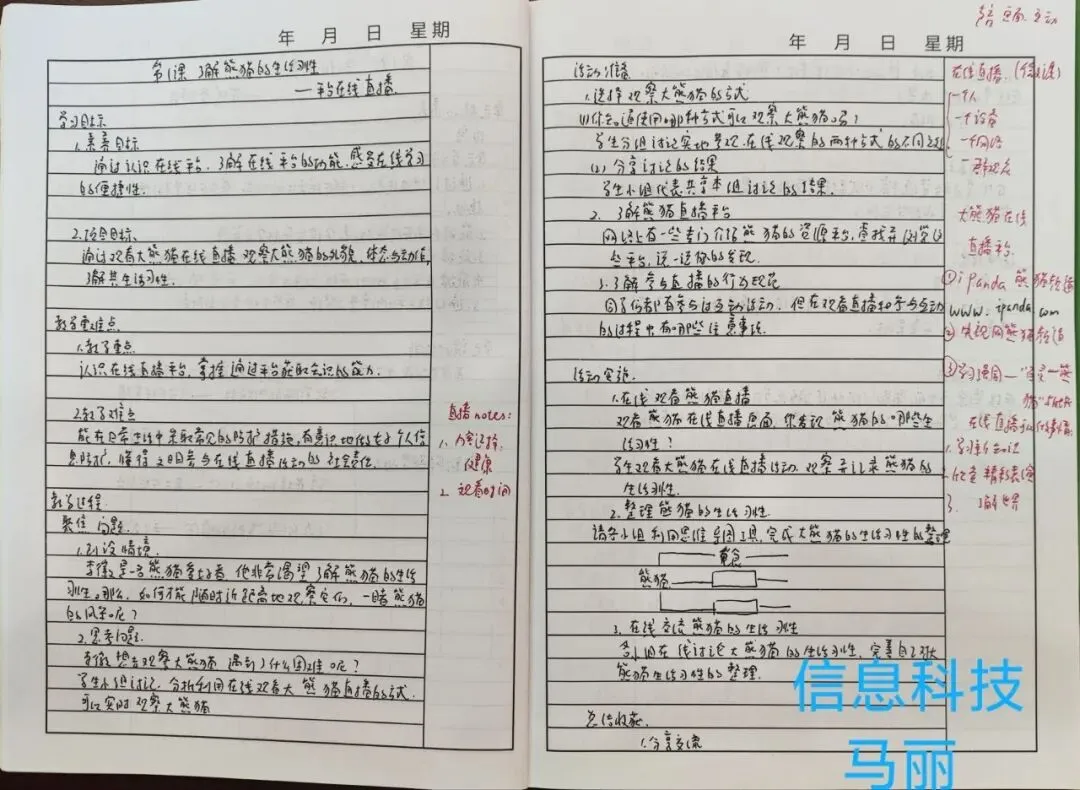 年 月 日 星期
第1课 了解熊猫的生活习性
——平台在线直播
学习目标
1.素养目标
通过认识在线平台,了解在线平台的功能,感受在线学习
的便捷性.
2.项目目标
通过观看大熊猫在线直播,观察大熊猫的外貌、体态与动作,
了解其生活习性.
教学重难点
1.教学重点
认识在线直播平台,掌握通过平台获取知识的能力.
2.教学难点
能在日常生活中采取常见的防护措施,有意识地保护个人信
息防护,懂得文明参与在线直播活动的社会责任.
教学过程
聚焦问题.
1.创设情境.
李徽是一名熊猫爱好者,他非常渴望了解熊猫的生活
习性.那么,如何才能随时近距离地观察它们,一睹熊猫
的风采呢?
2.思考问题.
李徽想去观察大熊猫遇到了什么困难呢?
学生小组讨论,分析利用在线观看大熊猫直播的方式
可以实时观察大熊猫
直播notes:
1、内容选择,
健康
2、观看时间
年 月 日 星期
活动准备
1.选择观察大熊猫的方式
(1)你知道使用哪种方式可以观察大熊猫吗?
学生分组讨论实地参观、在线观察的两种方式的不同之处
(2)分享讨论的结果
学生小组代表共享本组讨论的结果.
2.了解熊猫直播平台
网络上有一些专门介绍熊猫的资源平台,查找并浏览这
些平台,说一说你的发现.
3.了解参与直播的行为规范
同学们都有参与过互动活动,但在观看直播和参与互动
的过程中有哪些注意事项.
活动实施.
1.在线观看熊猫直播
观看熊猫在线直播画面,你发现熊猫的哪些生
活习性?
学生观看大熊猫在线直播活动,观察并记录熊猫的
生活习性.
2.整理熊猫的生活习性.
请各小组利用思维导图工具,完成大熊猫的生活习性的整理
熊猫
3.在线交流熊猫的生活习性
各小组在线讨论大熊猫的生活习性,完善自己对大
熊猫生活习性的整理.
总结收获.
1.分享交流
在线直播.
一个人
一个设备
一个网络
一群观众
大熊猫在线
直播平台
①iPanda 熊猫频道
www.ipanda.com
②央视网熊猫频道
③学习强国—
在线直播
1.学习新知识
精彩表演
3.了解世界
信息科技
马丽